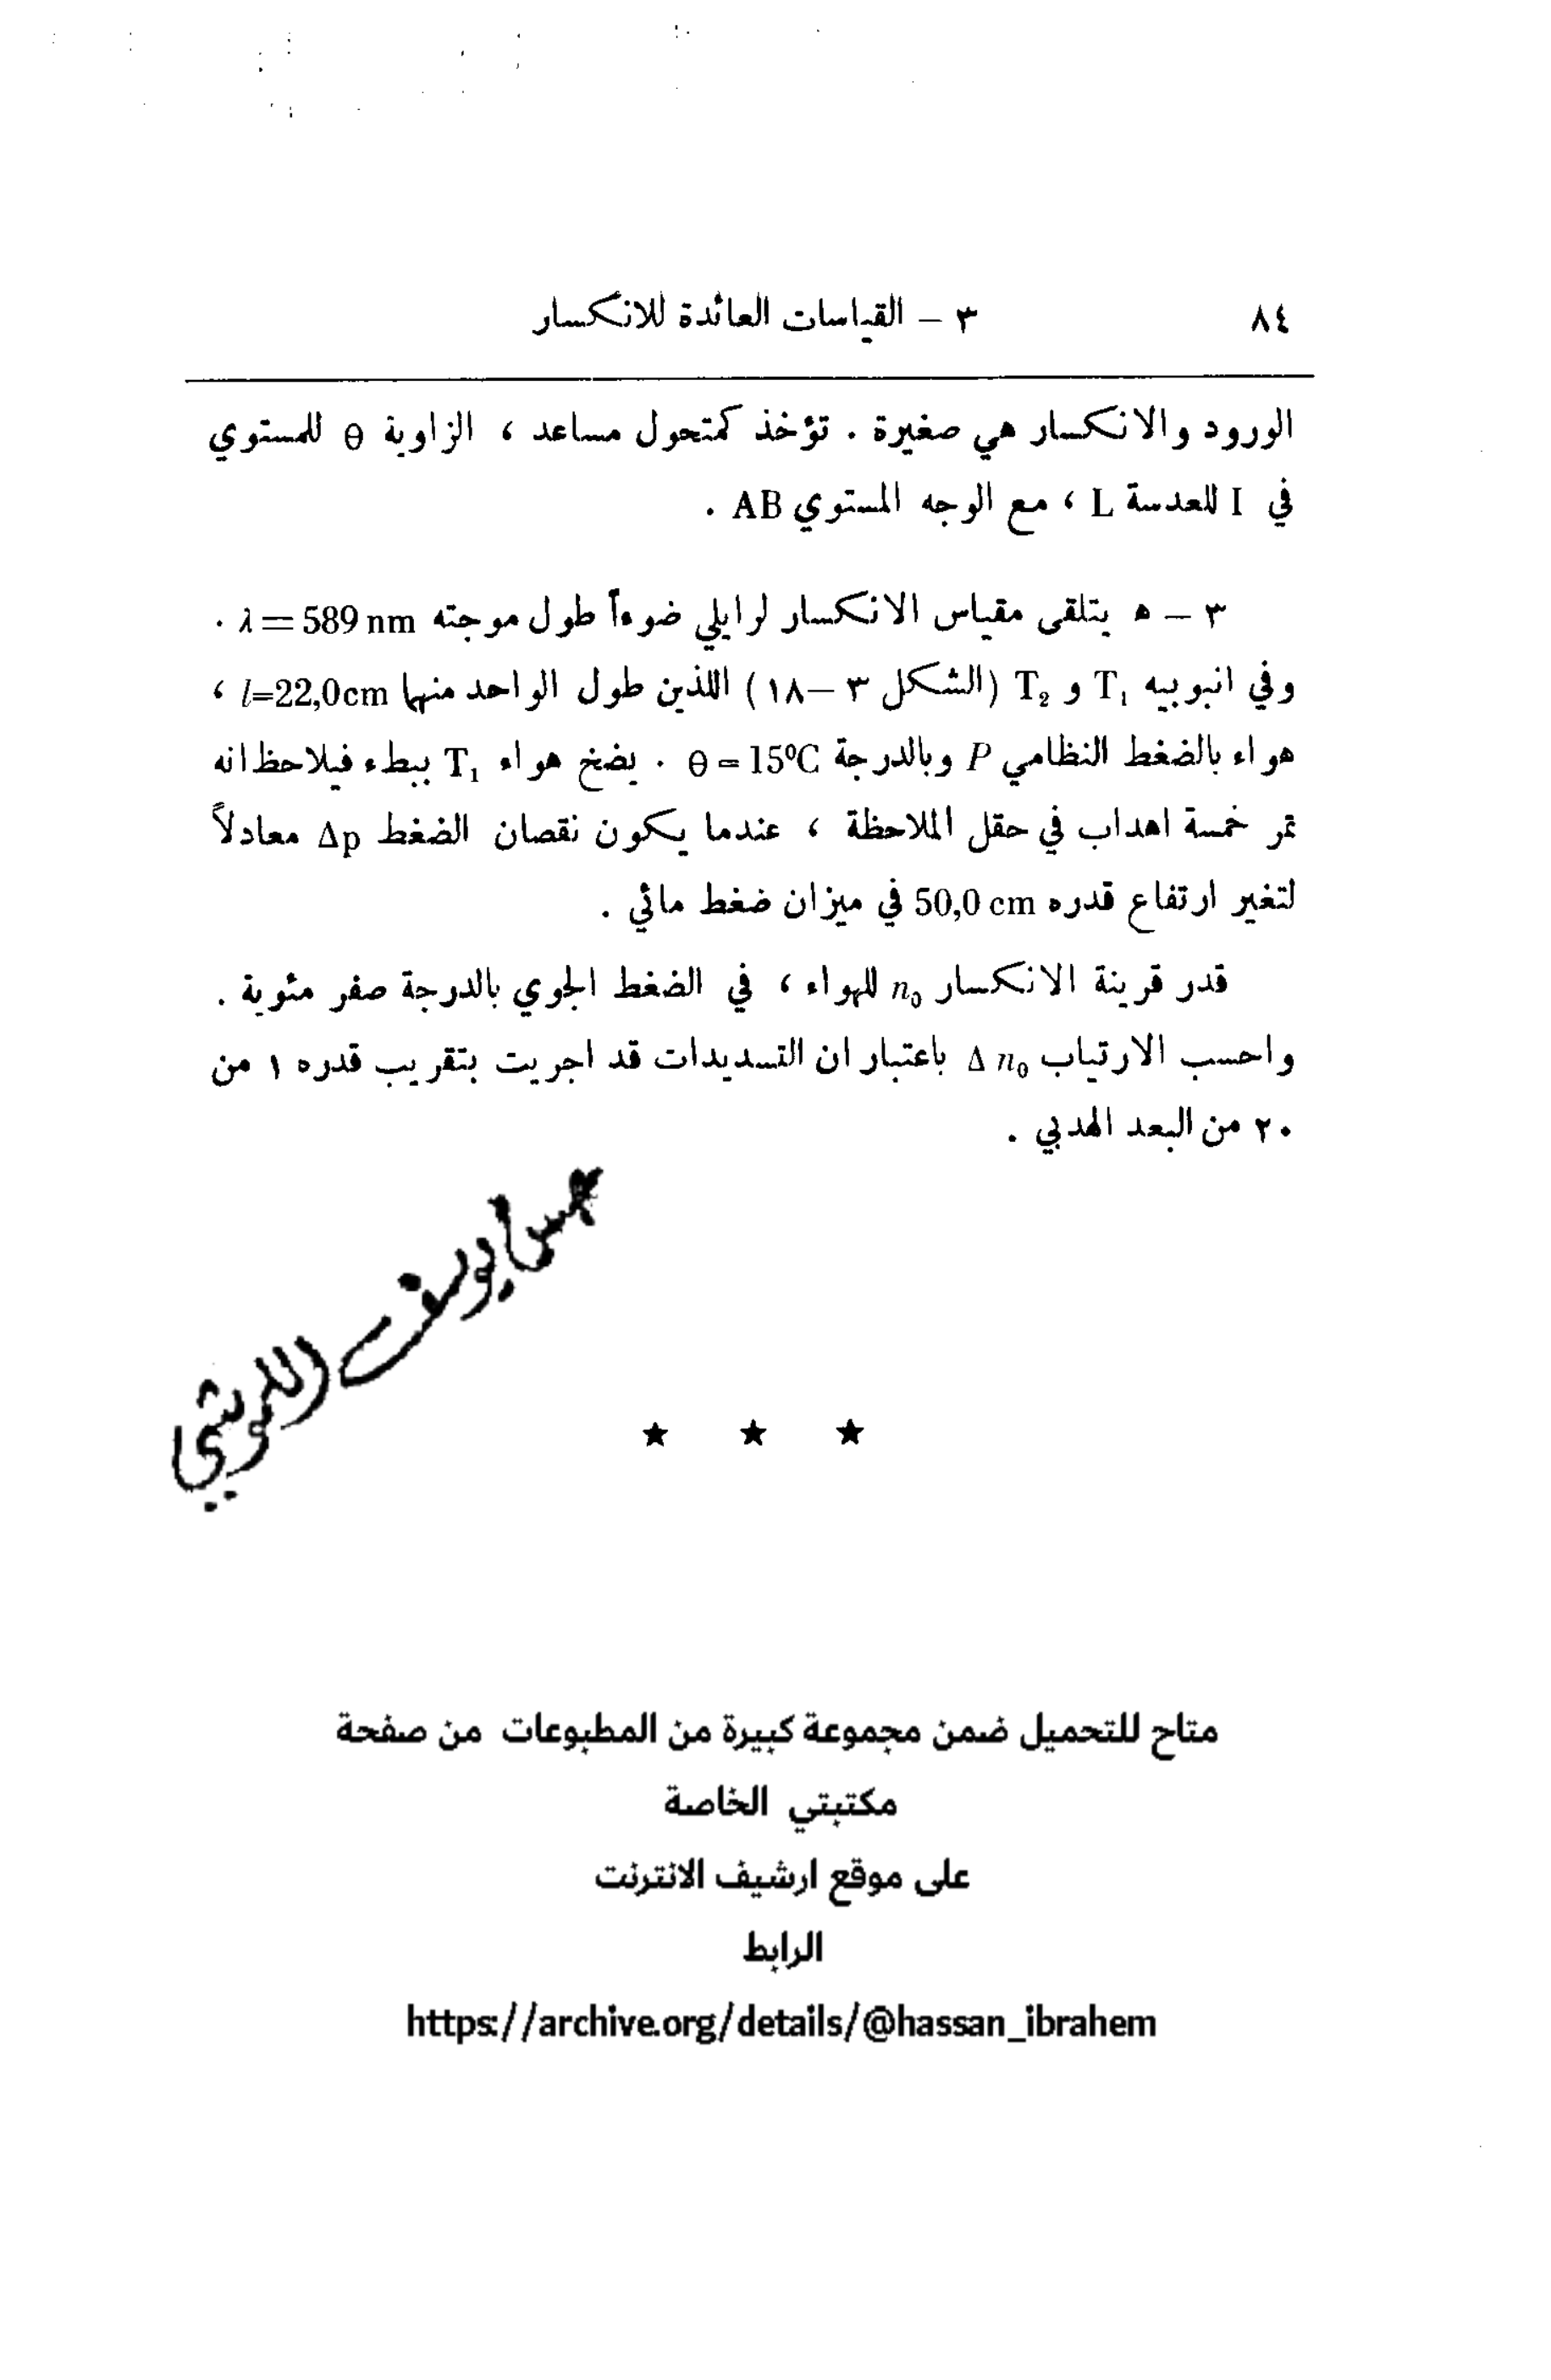 ٨٤ ٣ – القياسات العائدة للانكسار
الورود والانكسار هي صغيرة . تؤخذ كمتحول مساعد ، الزاوية θ للمستوي
في I للعدسة L ، مع الوجه المستوي AB .
٣ – ٥ يتلقى مقياس الانكسار لرايلي ضوءاً طول موجته λ = 589 nm .
وفي انبوبيه T₁ و T₂ (الشكل ٣ –١٨ ) اللذين طول الواحد منها l=22,0cm ،
هواء بالضغط النظامي P وبالدرجة θ = 15ºC . يضخ هواء T₁ ببطء فيلاحظ انه
تمر خمسة اهداب في حقل الملاحظة ، عندما يكون نقصان الضغط Δp معادلاً
لتغير ارتفاع قدره 50,0 cm في ميزان ضغط مائي .
قدر قرينة الانكسار n₀ للهواء ، في الضغط الجوي بالدرجة صفر مئوية .
واحسب الارتياب Δ n₀ باعتبار ان التسديدات قد اجريت بتقريب قدره ١ من
٢٠ من البعد الهدبي .
يوسف
★ ★ ★
متاح للتحميل ضمن مجموعة كبيرة من المطبوعات من صفحة
مكتبتي الخاصة
على موقع ارشيف الانترنت
الرابط
https://archive.org/details/@hassan_ibrahem